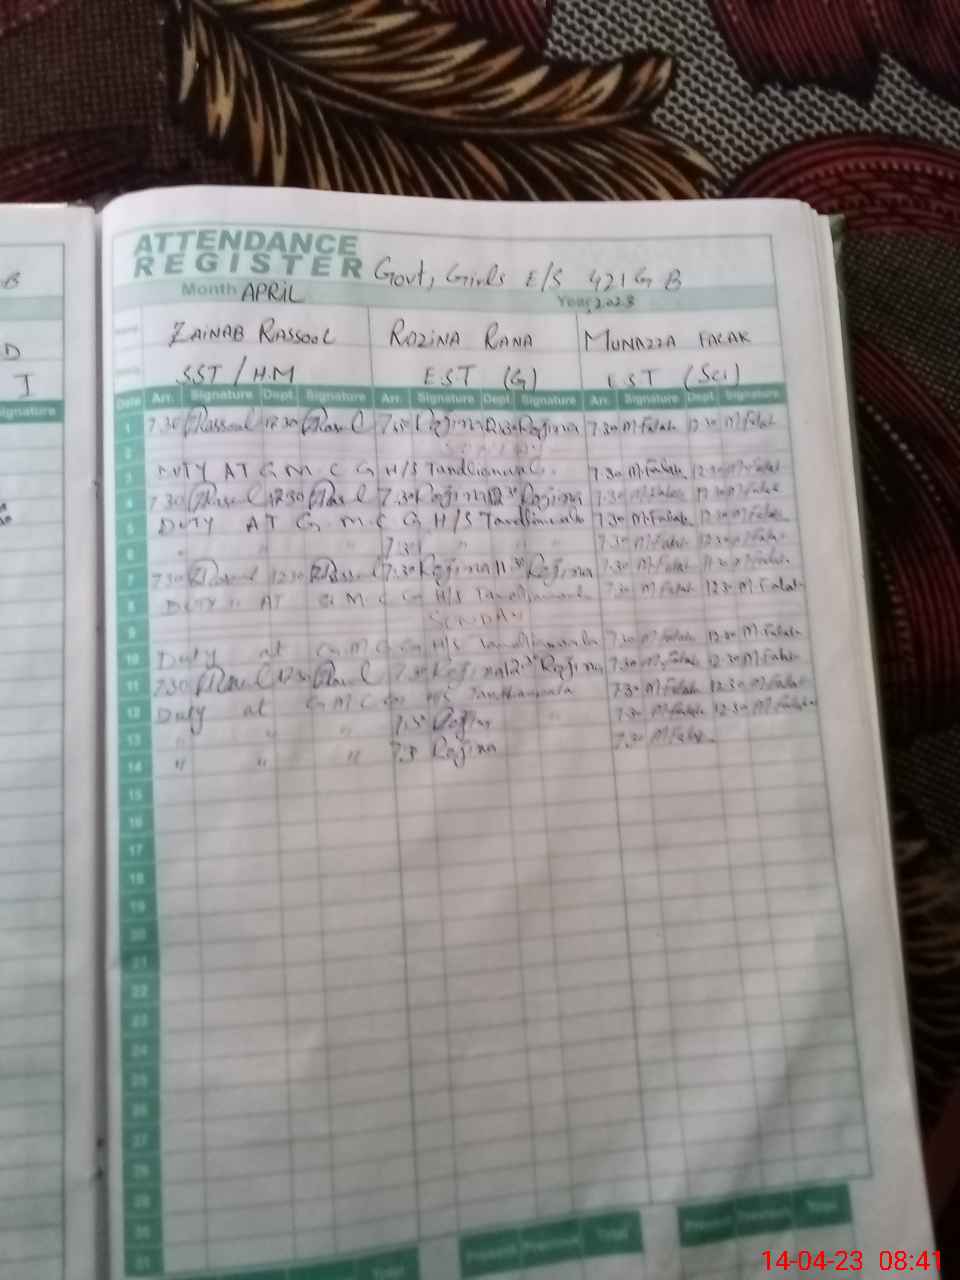 B
D
I
Signature
ATTENDANCE
REGISTER Govt, Girls E/S 421 G B
Month APRIL Year 2023
ZAINAB RASSOOL ROZINA RANA MUNAZZA FALAK
SST / H.M EST (G) EST (Sci)
Date Arr. Signature Dept. Signature Arr. Signature Dept. Signature Arr. Signature Dept. Signature
1 7.30 Rassool 12.30 7.30 Rojina 12.30 Rojina 7.30 M.Falak 12.30 M.Falak
2 SUNDAY
3 DUTY AT G M C G H/S Tandlianwala. 7.30 M.Falak 12.30 M.Falak
4 7.30 12.30 7.30 Rojina 12.30 Rojina 7.30 M.Falak 12.30 M.Falak
5 DUTY AT G M C G H/S Tandlianwala 7.30 M.Falak 12.30 M.Falak
6 " " " 7.30 " " 7.30 M.Falak 12.30 M.Falak
7 7.30 Rassool 12.30 Rassool 7.30 Rojina 11.30 Rojina 7.30 M.Falak 11.30 M.Falak
8 DUTY AT G M C G H/S Tandlianwala 7.30 M.Falak 12.30 M.Falak
9 SUNDAY
10 Duty at G M C G H/S Tandlianwala 7.30 M.Falak 12.30 M.Falak
11 7.30 12.30 7.30 Rojina 12.30 Rojina 7.30 M.Falak 12.30 M.Falak
12 Duty at G M C G H/S Tandlianwala 7.30 M.Falak 12.30 M.Falak
13 " " " 7.30 Rojina " 7.30 M.Falak 12.30 M.Falak
14 " " " 7.30 Rojina 7.30 M.Falak
15
16
17
18
19
20
21
22
23
24
25
26
27
28
29
30
31
Present Previous Total Present Previous Total
14-04-23 08:41